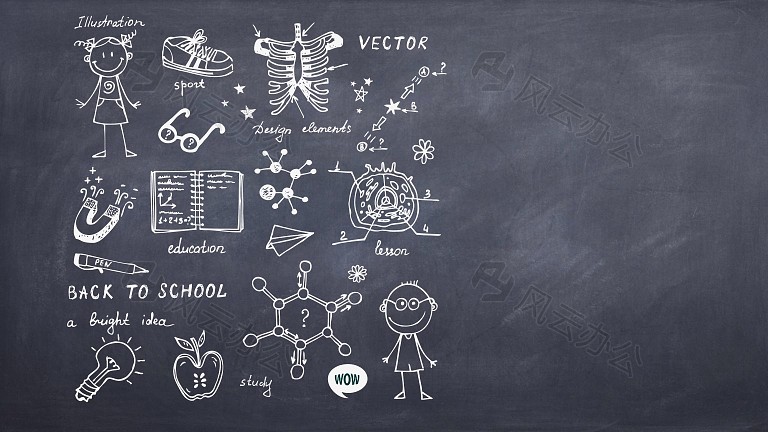 Illustration
VECTOR
sport
A ?
B
B ?
Design elements
? ?
1
3
1+2+3=?
2
4
education
lesson
PEN
BACK TO SCHOOL
a bright idea
?
study
WOW
风云办公
风云办公
风云办公
风云办公